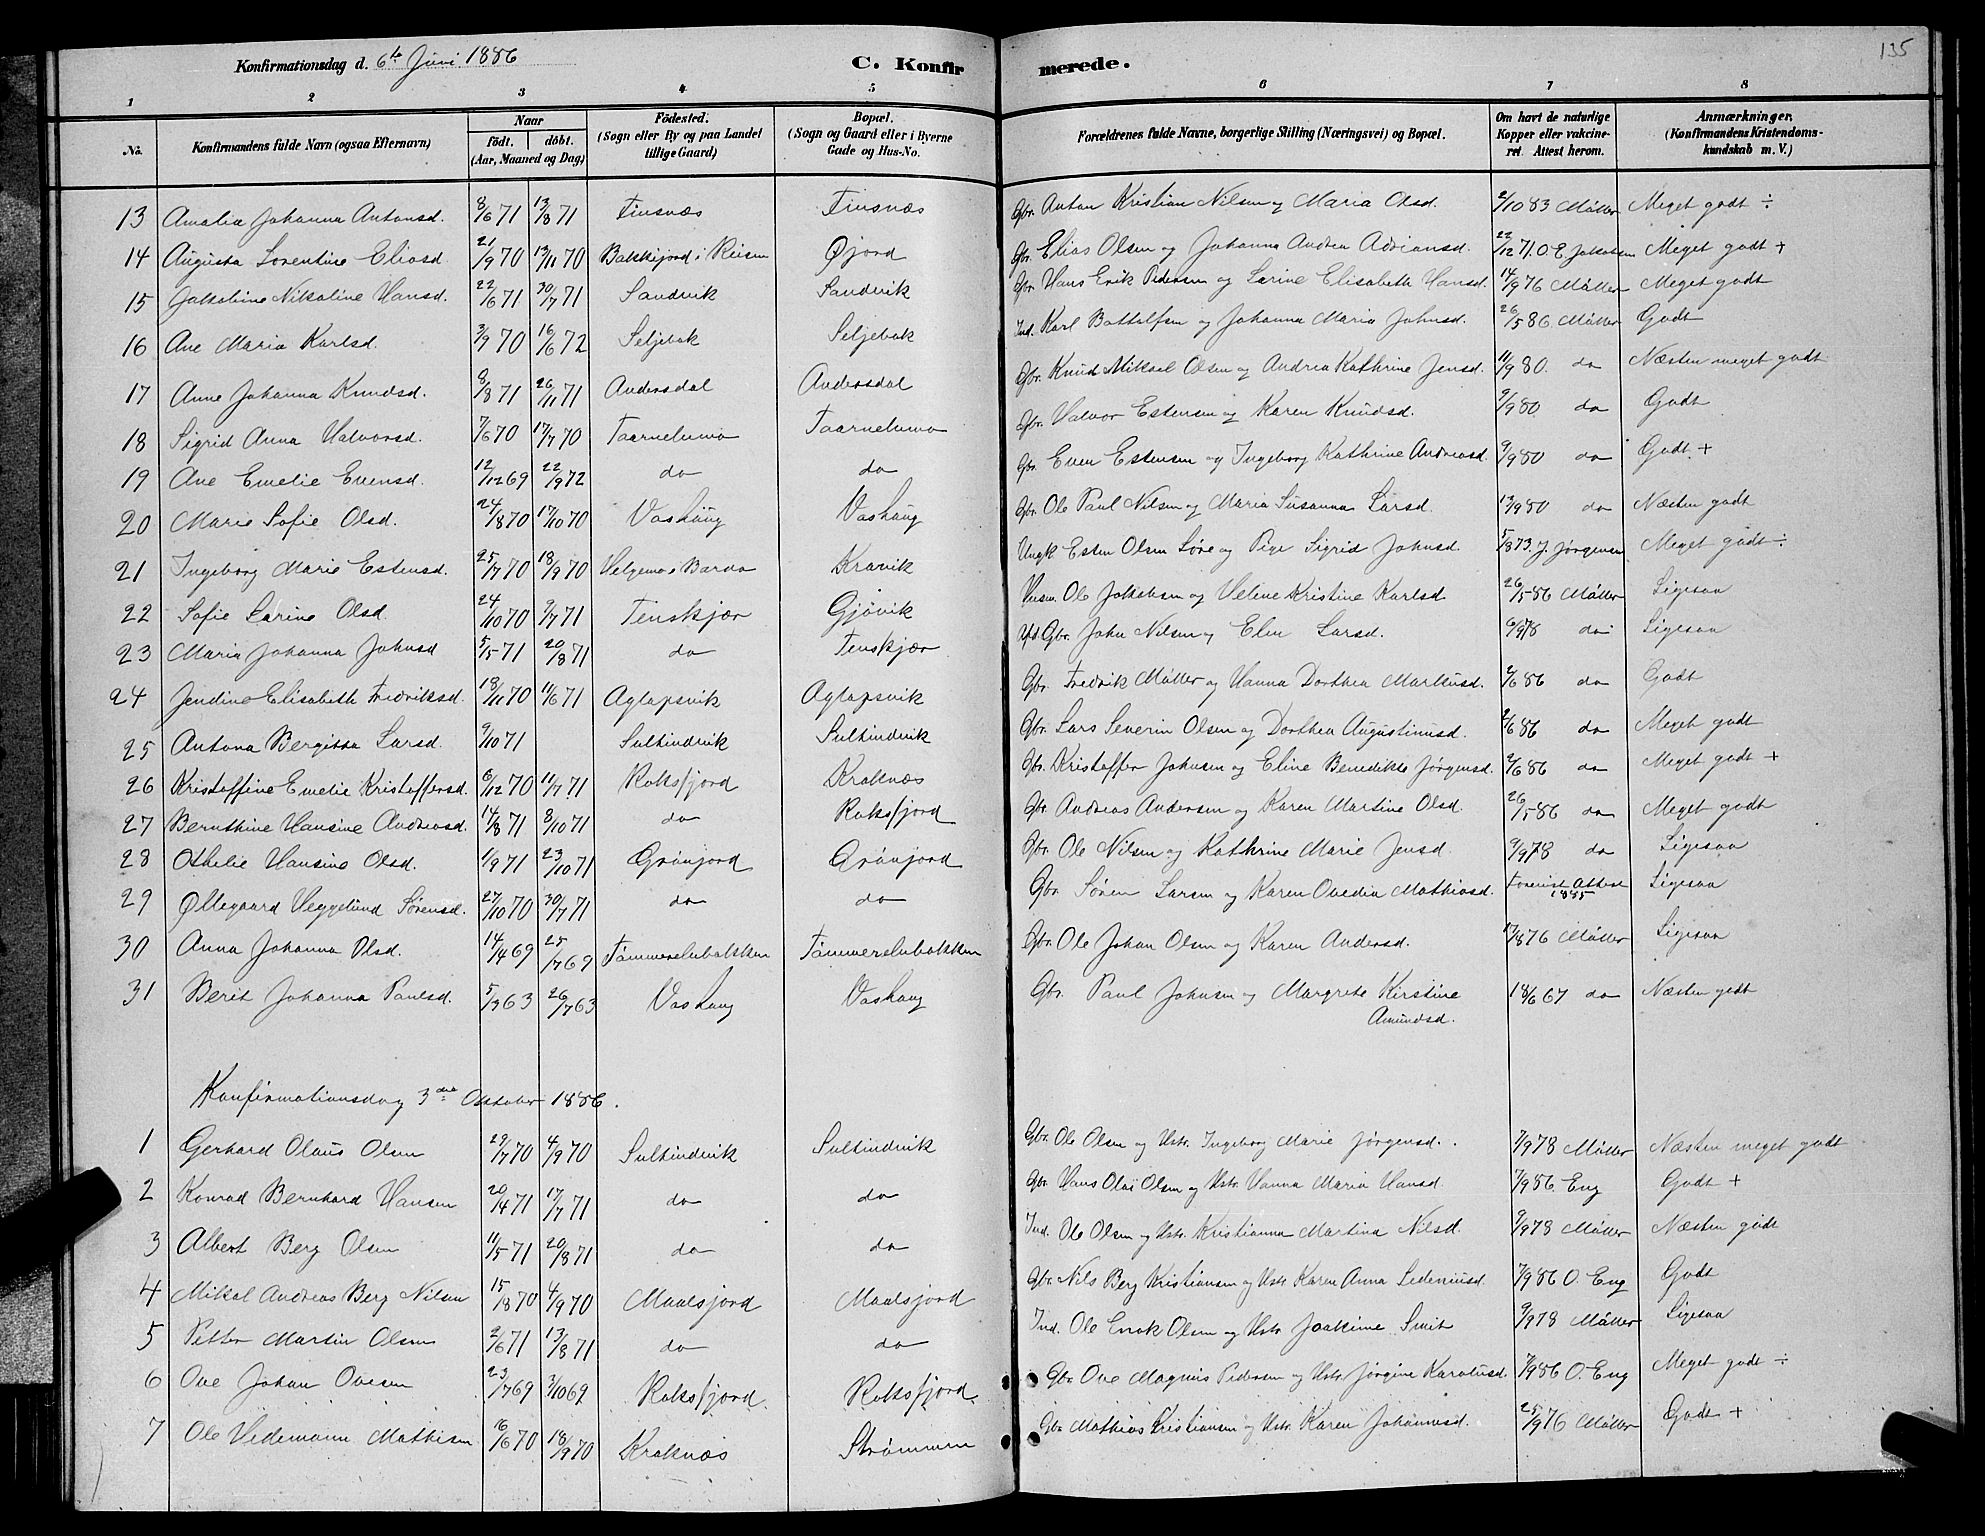 135
Konfirmationsdag d. 6te Juni 1886 C. Konfirmerede.
1 2 3 4 5 6 7 8
No. Konfirmandens fulde Navn (ogsaa Efternavn) Naar født. døbt. (Aar, Maaned og Dag) Fødested. (Sogn eller By og paa Landet tillige Gaard) Bopæl. (Sogn og Gaard eller i Byerne Gade og Hus-No. Forældrenes fulde Navne, borgerlige Stilling (Næringsvei) og Bopæl. Om havt de naturlige Kopper eller vakcineret. Attest herom. Anmærkninger. (Konfirmandens Kristendomskundskab m. V.)
13 Amalia Johanna Antonsd. 8/6 71 13/8 71 Finsnæs Finsnæs Gbr. Anton Kristian Nilsen og Maria Olsd. 2/10 83 Møller Meget godt ÷
14 Augusta Lorentine Eliasd. 21/9 70 13/11 70 Bakkejord i Reisen Øjord Gbr. Elias Olsen og Johanna Andrea Adriansd. 22/12 71. O. E. Jakobsen Meget godt +
15 Jakobine Nikoline Hansd. 22/6 71 30/7 71 Sandvik Sandvik Gbr. Hans Erik Pedersen og Sarine Elisabeth Hansd. 14/9 76 Møller Meget godt
16 Ane Maria Karlsd. 3/9 70 16/6 72 Seljebak Seljebak Ind. Karl Bottolfsen og Johanna Maria Johnsd. 26/5 86 Møller Godt
17 Anne Johanna Knudsd. 8/8 71 26/11 71 Andersdal Andersdal Gbr. Knud Mikael Olsen og Andrea Kathrine Jensd. 11/9 80. do Næsten meget godt
18 Sigrid Anna Halvorsd. 7/6 70 17/7 70 Taarnelumo Taarnelumo Gbr. Halvor Estensen og Karen Knudsd. 9/9 80 do Godt
19 Ane Emelie Evensd. 12/12 69 22/9 72 do do Gbr. Even Estensen og Ingeborg Kathrine Andreasd. 9/9 80 do Godt. +
20 Marie Sofie Olsd. 24/8 70 17/10 70 Vashaug Vashaug Gbr. Ole Paul Nilsen og Maria Susanna Larsd. 13/9 80 do Næsten godt
21 Ingeborg Marie Estensd. 25/7 70 18/9 70 Helgemo i Bardo Kravik Ungk. Esten Olsen Løre og Pige Sigrid Johnsd. 5/8 73. J. Jørgensen Meget godt ÷
22 Sofie Larine Olsd. 24/10 70 9/7 71 Tenskjær Gjøvik Ole Jakobsen og Heline Kristine Karlsd 26/5 86 Møller Ligesaa
23 Maria Johanna Johnsd 5/5 71 20/8 71 do Tenskjær Gbr. John Nilsen og Elen Larsd. 6/9 78 do Ligesaa
24 Jendine Elisabeth Fredriksd. 18/11 70 11/6 71 Aglapsvik Aglapsvik Gbr. Fredrik Møller og Hanna Dorthea Markusd. 2/6 86 do Godt
25 Antona Bergitta Larsd. 9/10 71 Sultindvik Sultindvik Gbr. Lars Severin Olsen og Dorthea Augustinusd. 2/6 86 do Meget godt
26 Kristoffine Emelie Kristoffersd. 6/12 70 11/7 71 Roksfjord Kraknæs Gbr. Kristoffer Johnsen og Eline Benedikte Jørgensd. 2/6 86 do Meget godt +
27 Bernthine Hansine Andreasd. 14/8 71 8/10 71 do Roksfjord Gbr. Andreas Andersen og Karen Martine Olsd. 26/5 86 do Meget godt
28 Othelie Hansine Olsd. 1/9 71 23/10 71 Grønjord Grønjord Gbr. Ole Nilsen og Kathrine Marie Jensd. 9/9 78 do Ligesaa
29 Øllegaard Heggelund Sørensd. 27/10 70 30/7 71 do do Gbr. Søren Larsen og Karen Ovedia Mathiasd. Attest 1885 Ligesaa
30 Anna Johanna Olsd. 14/4 69 25/7 69 Tømmerelvbakken Tømmerelvbakken Gbr. Ole Johan Olsen og Karen Andersd. 17/8 76 Møller Ligesaa
31 Berit Johanna Paulsd. 5/7 63 26/7 63 Vashaug Vashaug Gbr. Paul Johnsen og Margrete Kirstine Amundsd. 18/6 67 do Næsten godt
Konfirmationsdag 3die Oktober 1886.
1 Gerhard Olaus Olsen 29/7 70 4/9 70 Sultindvik Sultindvik Gbr. Ole Olsen og Hstr. Ingeborg Marie Jørgensd. 7/9 78 Møller Næsten meget godt
2 Konrad Bernhard Hansen 20/4 71 17/7 71 do do Gbr. Hans Olai Olsen og Hstr. Hanna Maria Hansd. 7/9 86. Eng Godt +
3 Albert Berg Olsen 11/5 71 20/8 71 do do Ind. Ole Olsen og Hstr. Kristianna Martina Nilsd. 9/9 78 Møller Næsten godt
4 Mikal Andreas Berg Nilsen 15/8 70 4/9 70 Maalsjord Maalsjord Gbr. Nils Berg Kristiansen og Hstr. Karen Anna Sedeniusd. 7/9 86 O. Eng Godt
5 Petter Martin Olsen 2/6 71 13/8 71 do do Ind. Ole Enok Olsen og Hstr. Joakime Smit 9/9 78 Møller Ligesaa
6 Ove Johan Ovesen 23/7 69 3/10 69 Roksfjord Roksfjord Gbr. Ove Magnus Pedersen og Hstr. Jørgine Karolusd. 7/9 86 O. Eng Meget godt ÷
7 Ole Hedemann Mathisen 16/6 70 18/9 70 Kraknæs Strømmen Gbr. Mathias Kristiansen og Hstr. Karen Johannesd. 25/9 76 Møller Godt +